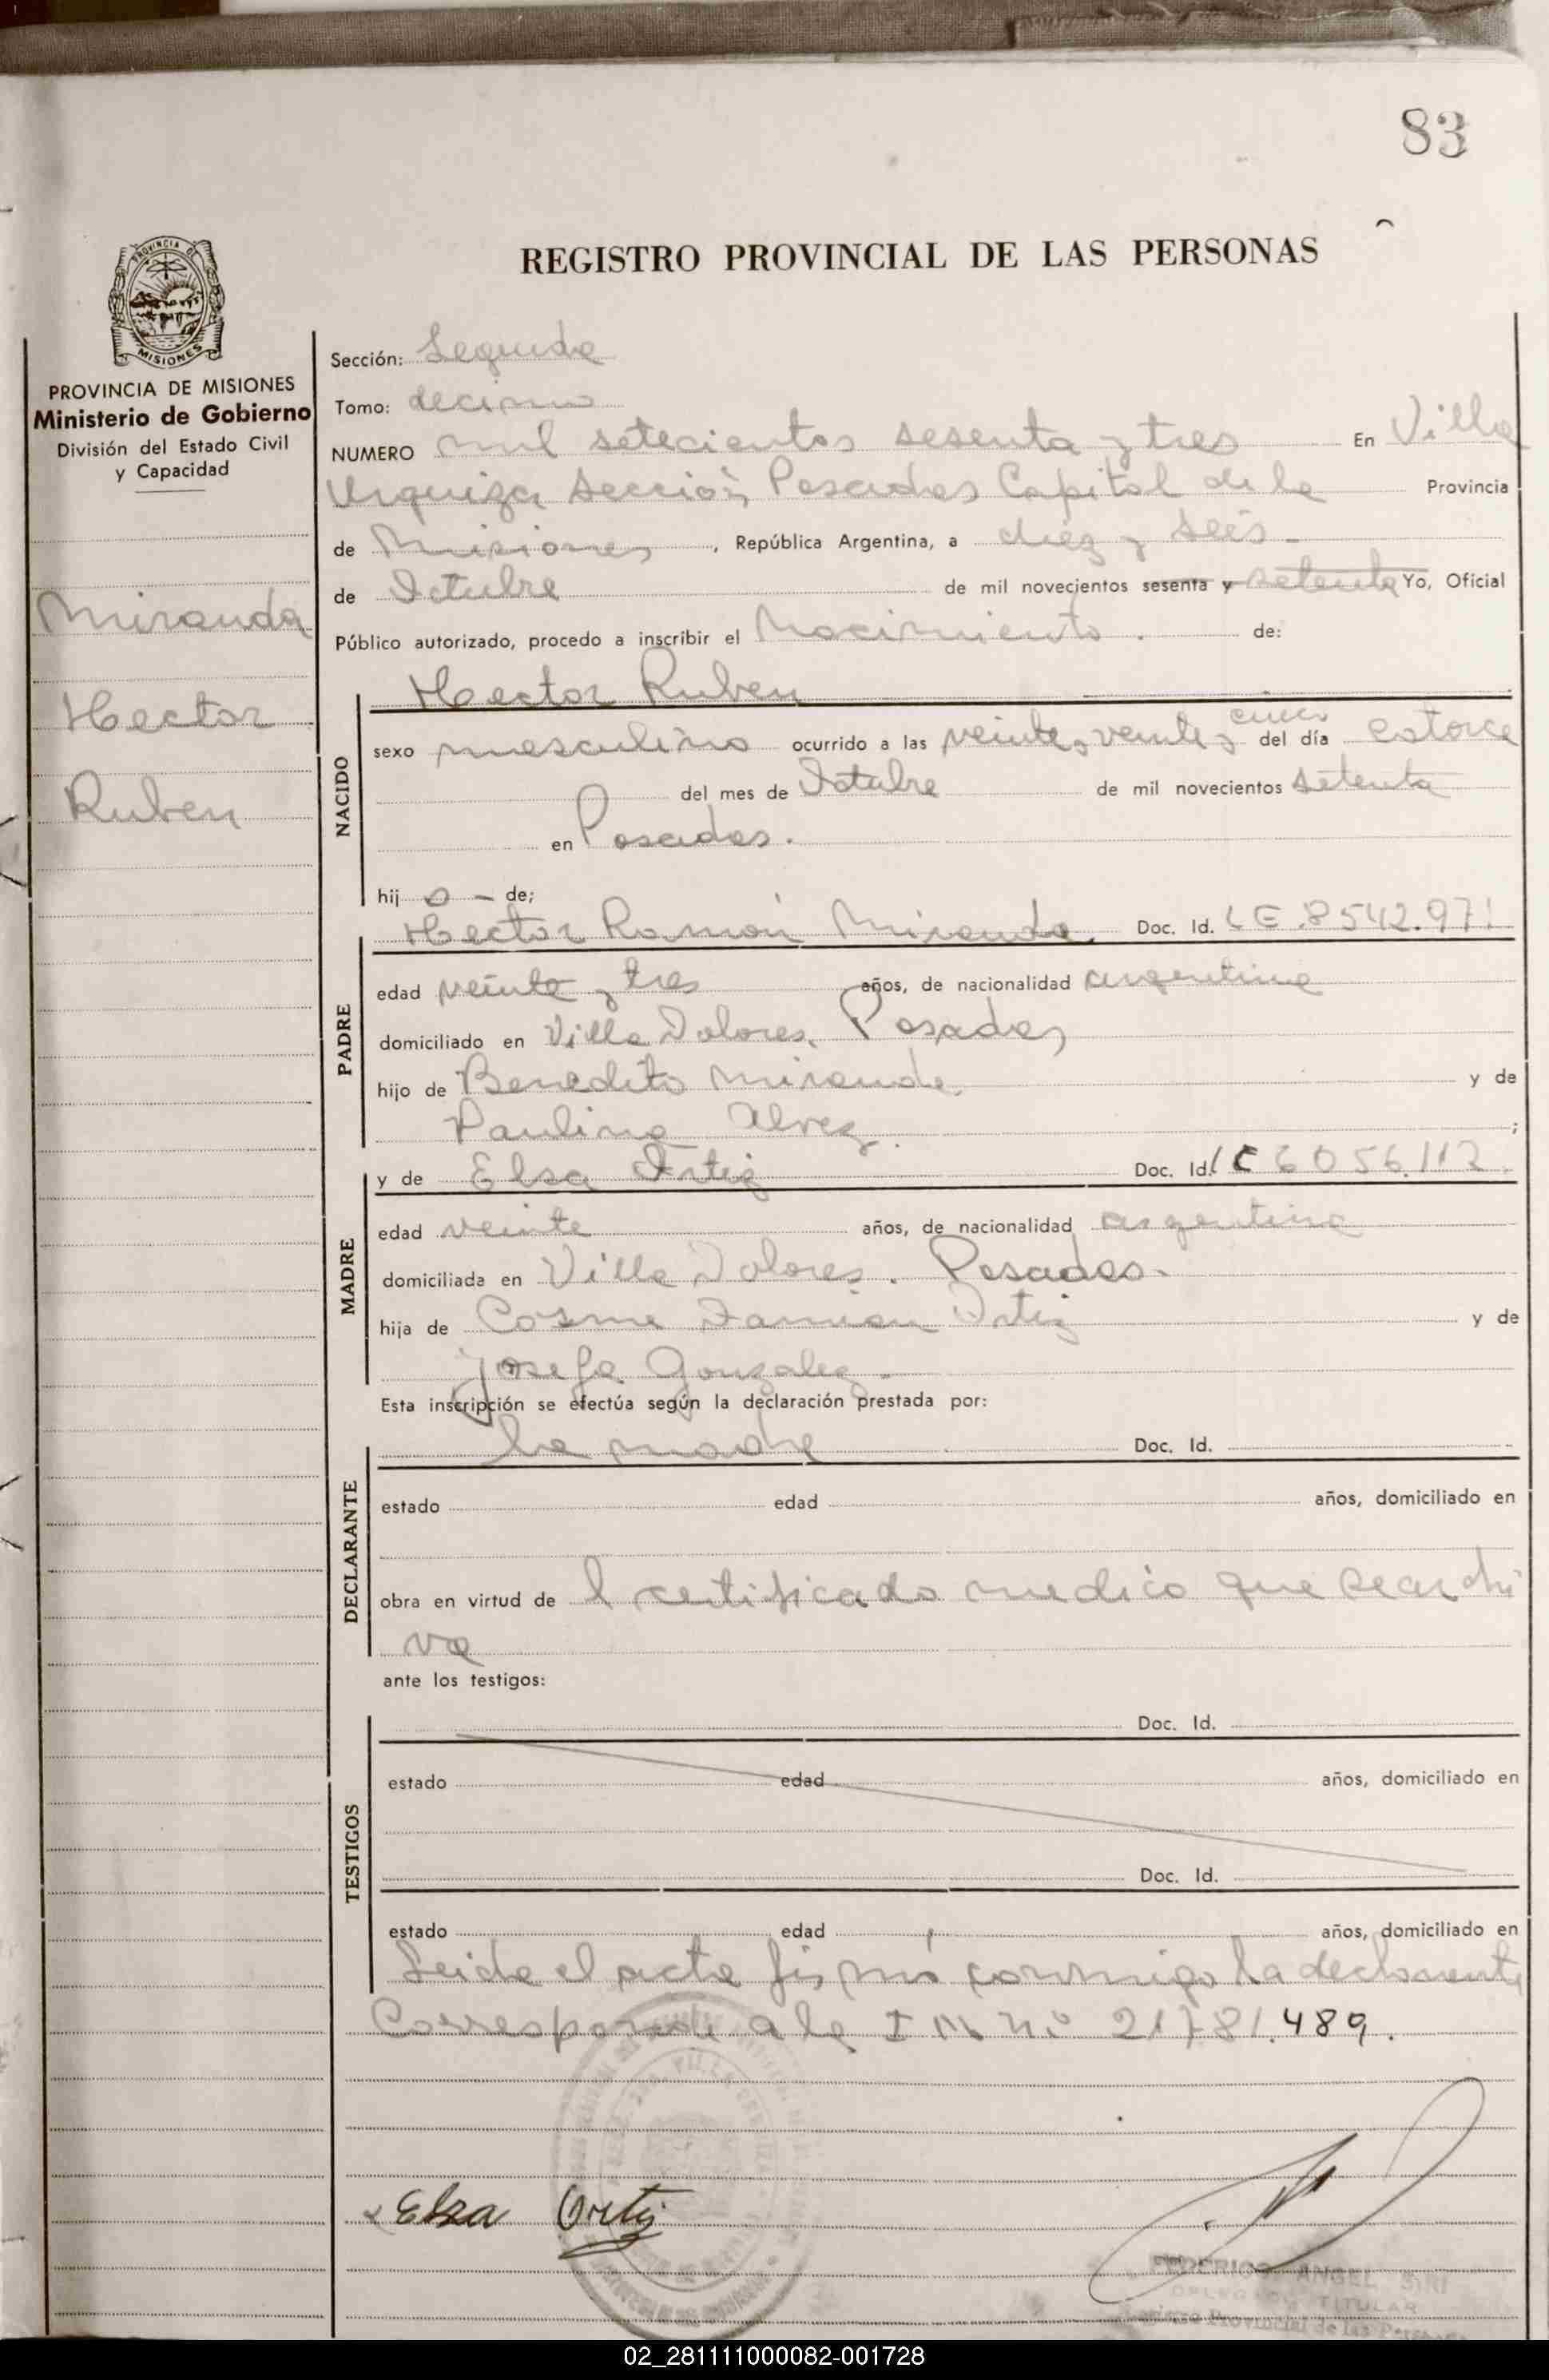 83
REGISTRO PROVINCIAL DE LAS PERSONAS
PROVINCIA DE MISIONES
Ministerio de Gobierno
División del Estado Civil
y Capacidad
Miranda
Hector
Ruben
Sección: Segunda
Tomo: decimo
NUMERO mil setecientos sesenta y tres En Villa
Urquiza Sección Posadas Capital de la Provincia
de Misiones, República Argentina, a diez y seis
de Octubre de mil novecientos sesenta y setenta Yo, Oficial
Público autorizado, procedo a inscribir el Nacimiento. de:
NACIDO
Hector Ruben
sexo masculino ocurrido a las veinte y veinte y cinco del día catorce
del mes de Octubre de mil novecientos setenta
en Posadas.
hij o - de;
PADRE
Hector Ramon Miranda. Doc. Id. LE.8542.971
edad veinte y tres años, de nacionalidad argentina
domiciliado en Villa Dolores. Posadas
hijo de Benedito Miranda. y de
Paulina Alvez. ;
MADRE
y de Elsa Ortiz Doc. Id. LC 6056.112.
edad veinte años, de nacionalidad argentina
domiciliada en Villa Dolores. Posadas.
hija de Cosme Damian Ortiz y de
Josefa Gonzalez.
Esta inscripción se efectúa según la declaración prestada por:
DECLARANTE
la madre Doc. Id.
estado edad años, domiciliado en
obra en virtud de l certificado medico que se archi
va
ante los testigos:
TESTIGOS
Doc. Id.
estado edad años, domiciliado en
Doc. Id.
estado edad años, domiciliado en
Leida el acta firmó conmigo la declarante
Corresponde a la I M nº 21781.489.
Elsa Ortiz
FEDERICO ANGEL SINI
DELEGADO TITULAR
Registro Provincial de las Personas
02_281111000082-001728